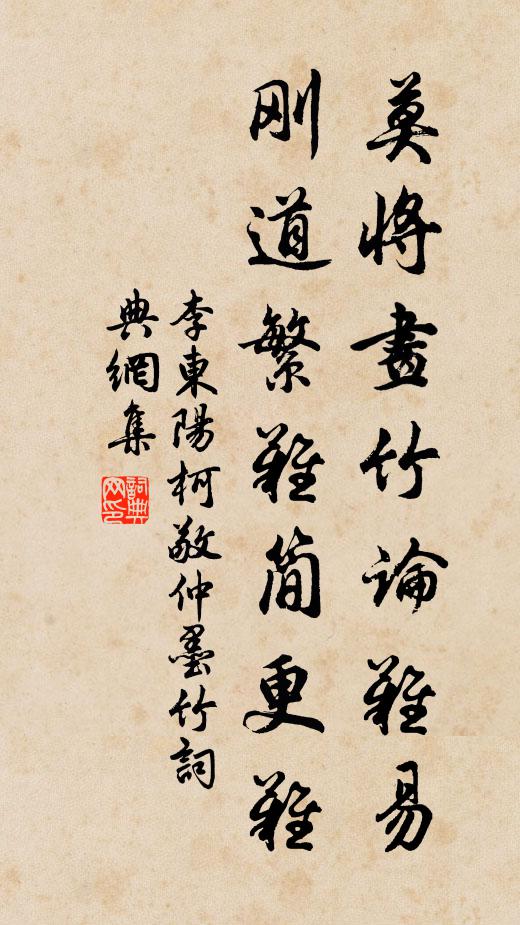 莫將畫竹論難易
刚道繁難簡更難
李東陽柯敬仲墨竹詞
典網集
詞典网印